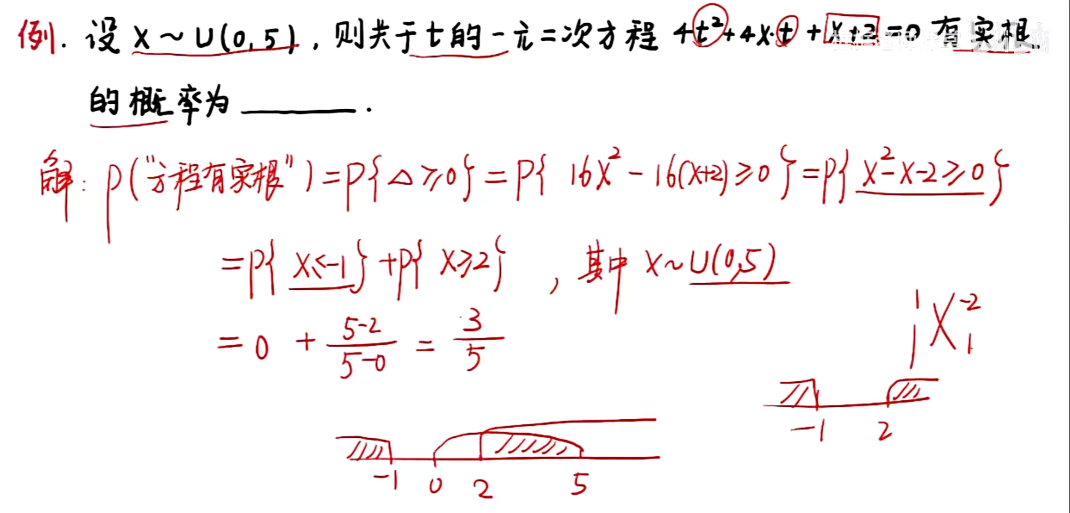 例. 设 X ~ U(0,5), 则关于t的一元二次方程 4t²+4x·t+x+2=0 有实根
的概率为 ______.
解: P("方程有实根")=P{△≥0}=P{16X²-16(X+2)≥0}=P{X²-X-2≥0}
=P{X≤-1}+P{X≥2}, 其中 X~U(0,5)
= 0 + \frac{5-2}{5-0} = \frac{3}{5}
1 -2
1 1
-1 2
-1 0 2 5